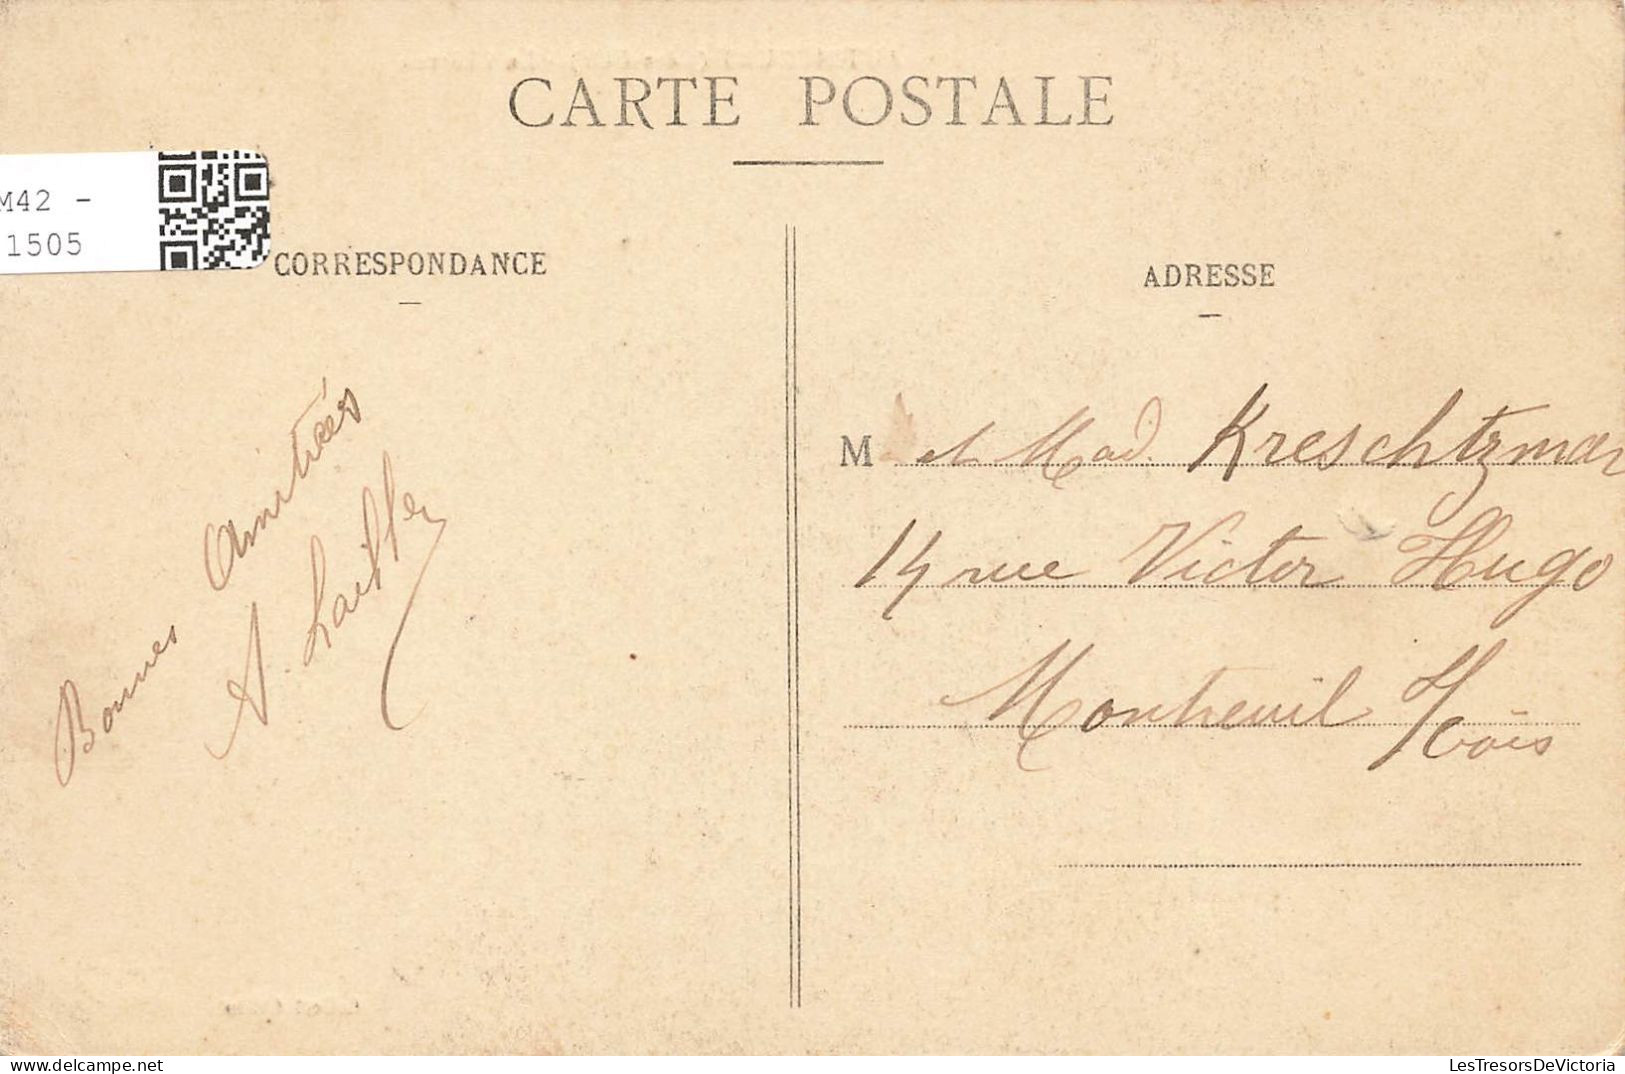 CARTE POSTALE
M42 -
1505
CORRESPONDANCE
Bonnes Amitiés
A.
ADRESSE
M et Mad. Kreschtzmar
14 rue Victor Hugo
Montreuil s/Bois
LesTresorsDeVictoria